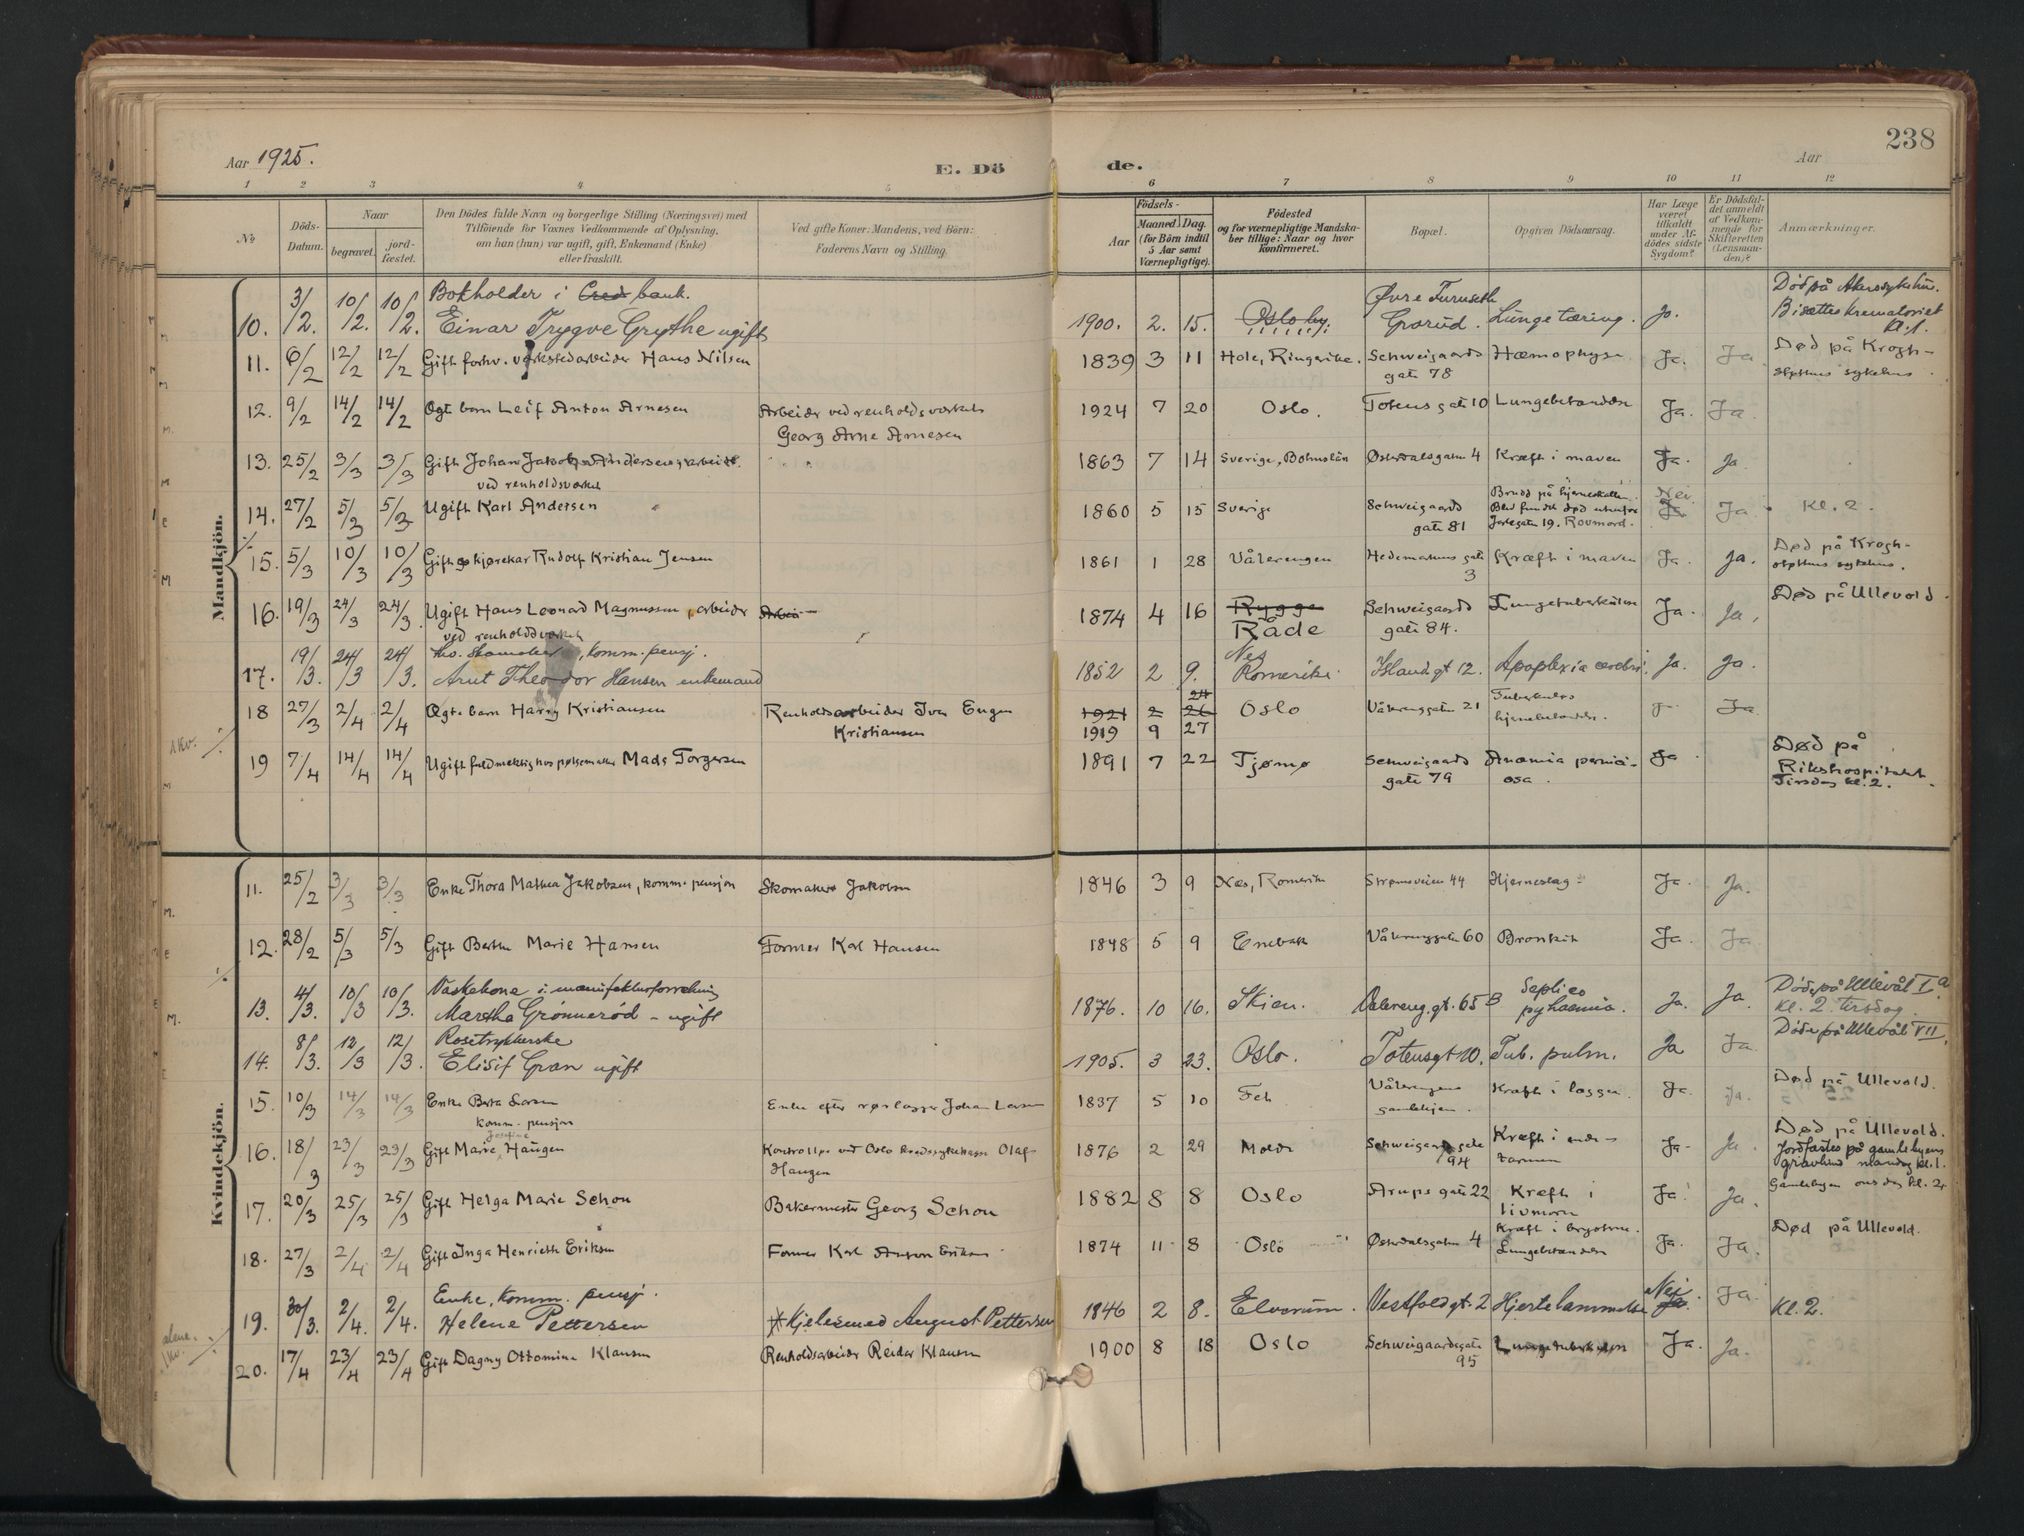 238
Aar 1925.
E. Dö de.
Aar
1 2 3 4 5 6 7 8 9 10 11 12
No
Döds-Datum.
Naar
begravet.
jord-fæstet.
Den Dödes fulde Navn og borgerlige Stilling (Næringsvei) med
Tilföiende for Voxnes Vedkommende af Oplysning,
om han (hun) var ugift, gift, Enkemand (Enke)
eller fraskilt.
Ved gifte Koner: Mandens, ved Börn:
Faderens Navn og Stilling.
Födsels-
Aar
Maaned. Dag.
(for Börn indtil
5 Aar samt
Værnepligtige).
Födested
og for værnepligtige Mandska-
ber tillige: Naar og hvor
konfirmeret.
Bopæl.
Opgiven Dödsaarsag.
Har Læge
været
tilkaldt
under Af-
dödes sidste
Sygdom?
Er Dödsfal-
det anmeldt
af Vedkom-
mende for
Skifteretten
(Lensman-
den)?
Anmærkninger.
Mandkjön.
10. 3/2. 10/2. 10/2. Bokholder i Cred bank.
Einar Trygve Grythe ugift 1900. 2. 15. Oslo by. Øvre Furuseth
Grorud. Lungetæring. Ja. Død på Akers sykehus.
Bisættes krematoriet
kl. 1.
11. 6/2 12/2 12/2 Gift forhv. verkstedarbeider Hans Nilsen 1839 3 11 Hole, Ringerike. Schweigaards
gate 78 Hæmophyse Ja. Ja Død på Krogh-
støttens sykehus.
12. 9/2 14/2 14/2 Ogte barn Leif Anton Arnesen Arbeider ved renholdsverket
Georg Arne Arnesen 1924 7 20 Oslo. Totens gate 10 Lungebetændelse Ja. Ja.
13. 25/2 3/3 3/3 Gift Johan Jakob Andersen, arbeider
ved renholdsverket 1863 7 14 Sverige, Bohuslän Østerdalsgaten 4 Kræft i maven Ja. Ja.
14. 27/2 5/3 5/3 Ugift Karl Andersen 1860 5 15 Sverige Schweigaards
gate 81 Brudd på hjerneskallen.
Blev fundet død utenfor
Jarlegaten 19. Rovmord. Nei. Ja Kl. 2.
15. 5/3 10/3 10/3 Gift kjørekar Rudolf Kristian Jensen 1861 1 28 Vålerengen Hedemarkens gate
3 Kræft i maven Ja. Ja. Død på Krogh-
støttens sykehus.
16. 19/3 24/3 24/3. Ugift Hans Leonard Magnussen, arbeider
ved renholdsverket Arbei 1874 4 16 Rygge
Råde Schweigaards
gate 84. Lungetuberkulose Ja. Ja. Død på Ullevold.
17. 19/3. 24/3 24/3. komm. pensj.
Arnt Theodor Hansen enkemand 1852 2 9. Nes
Romerike Islandgt 12. Apoplexia cerebri. Ja. Ja.
18 27/3 2/4 2/4 Ogte barn Harry Kristiansen Renholdsarbeider Iver Eugen
Kristiansen 1921 2 26 24
1919 9 27 Oslo Vålerenggaten 21 Tuberkuløs
hjernebetændelse. Ja
19 7/4 14/4 14/4 Ugift fuldmektig hos pølsemaker Mads Torgersen 1891 7 22 Tjømø Schweigaards
gate 79 Anæmia pernici-
osa. Ja Død på
Rikshospitalet
Tirsdag kl. 2.
Kvindekjön.
11. 25/2 3/3 3/3 Enke Thora Mathea Jakobsen, komm. pensjon Skomaker Jakobsen 1846 3 9 Nes, Romerike Strømsveien 44 Hjerneslag Ja. Ja.
12. 28/2 5/3 5/3 Gift Berthe Marie Hansen Former Karl Hansen 1848 5 9 Enebak Vålerenggaten 60 Bronkit Ja. Ja
13. 4/3. 10/3 10/3. Vaskekone i manufakturforretning
Martha Grønnerød - ugift 1876. 10 16. Skien. Vålereng.gt. 65 B Septico
pyhæmia. Ja. Ja. Døde på Ullevål I a
kl. 2 tirsdag.
14. 8/3. 12/3 12/3. Rosetrykkerske
Elisif Gran ugift 1905. 3 23. Oslo. Totensgt 10. Tub. pulm. Ja Ja. Døde på Ullevål VII.
15. 10/3 14/3 14/3 Enke Berta Larsen
komm. pensjon Enke efter rørlægger Johan Larsen 1837 5 10 Fet Vålerengens
gamlehjem. Kræft i læggen. Ja. Ja. Død på Ullevold.
16. 18/3 23/3 23/3 Gift Marie Josefine Haugen Kontrollør ved Oslo kredssykekasse Olaf
Haugen 1876 2 29 Molde Schweigaards gate
94 Kræft i ende-
tarmen Ja. Ja. Død på Ullevold.
Jordfæstes på gamlebyens
gravlund mandag kl. 1.
17. 20/3 25/3 25/3 Gift Helga Marie Schou Bakermester Georg Schou 1882 8 8 Oslo Arups gate 22 Kræft i
livmoren Ja. Ja. Gamlebyen onsdag kl. 2
18. 27/3 2/4 2/4 Gift Inga Henriette Eriksen Former Karl Anton Eriksen 1874 11 8 Oslo Østerdalsgaten 4 Kræft i brystene.
Lungebetændelse Ja. Ja. Død på Ullevold.
19. 30/3. 2/4. 2/4. Enke, komm. pensj.
Helene Pettersen Kjelesmed August Pettersen 1846 2 8. Elverum. Vestfoldgt. 2 Hjertelammelse Nei Ja. Ja. Kl. 2.
20. 17/4 23/4 23/4 Gift Dagny Ottomine Klausen Renholdsarbeider Reidar Klausen 1900 8 18 Oslo Schweigaardsgate
95 Lungetuberkulose Ja. Ja.